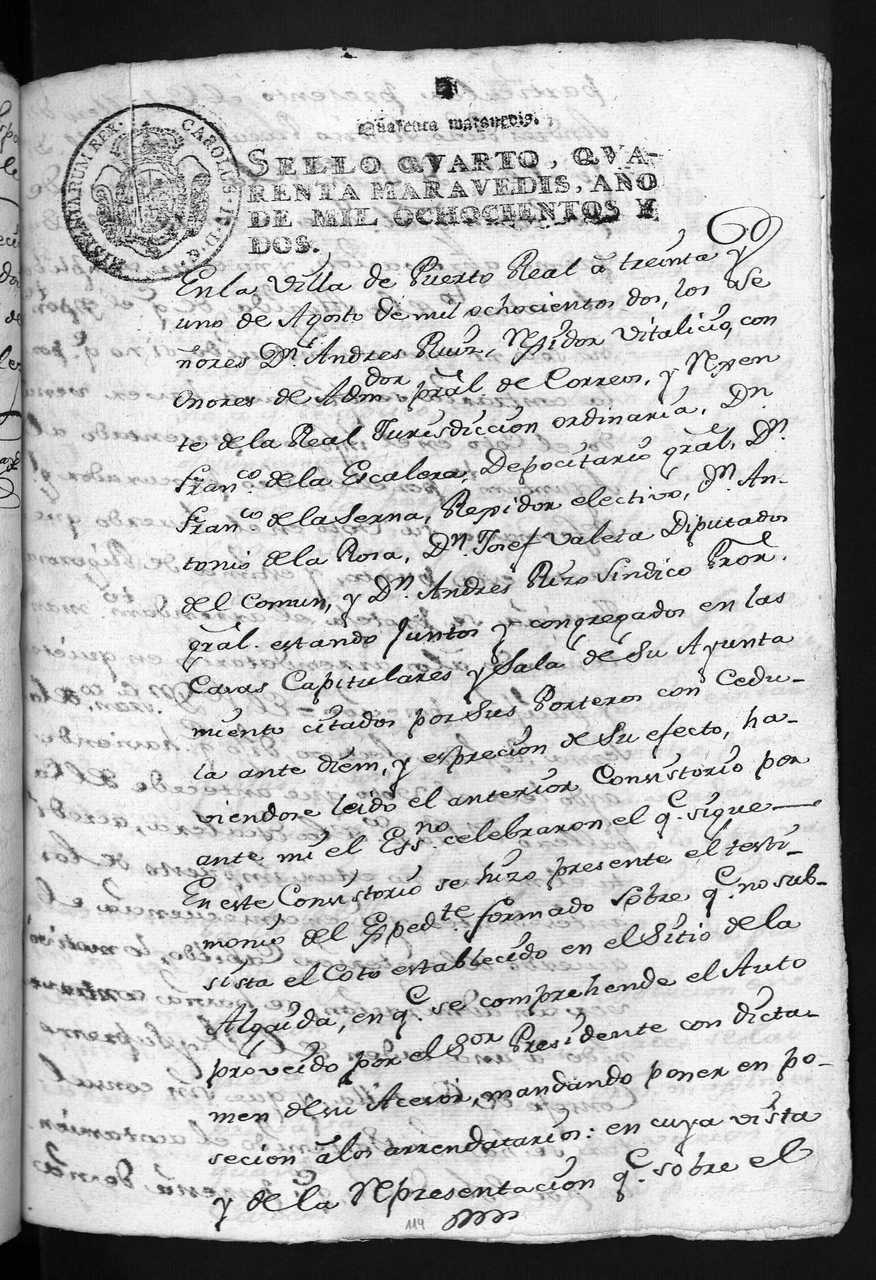 Quarenta maravedis.
SELLO QVARTO, QVA-
RENTA MARAVEDIS, AÑO
DE MIL OCHOCIENTOS Y
DOS.
CAROLUS IV D G HISPANIARUM REX
En la Villa de Puerto Real â treinta y
uno de Agosto de mil ochocientos dos, los Se
ñores Dn. Andres Ruiz, Rexidor Vitalicio, con
onores de Admdor. pral de Correos, y Rexen
te de la Real Jurisdiccion ordinaria, Dn
Franco. de la Escalera, Depocitario gral, Dn.
Franco. de la Serna, Rexidor electivo, Dn. An-
tonio de la Rosa, Dn. Josef Valera Diputados
del Comun, y Dn. Andres Rizo Sindico Pror.
gral. estando juntos y congregados en las
Casas Capitulares y Sala de Su Ayunta
miento citados por Sus Porteros con Cedu-
la ante diem, y espreción de Su efecto, ha-
viendose leido el anterior Consistorio por
ante mi el Essno. celebraron el q. sigue
En este Consistorio se hizo presente el testi-
monio del Expedte. formado sobre q. no sub-
sista el Coto establecido en el Sitio de la
Algaida, en q. se comprehende el Auto
proveido por el Sor. Presidente con dicta-
men de su Acesor, mandando poner en po-
secion â los arrendatarios: en cuya vista
y de la Representacion q. sobre el
114